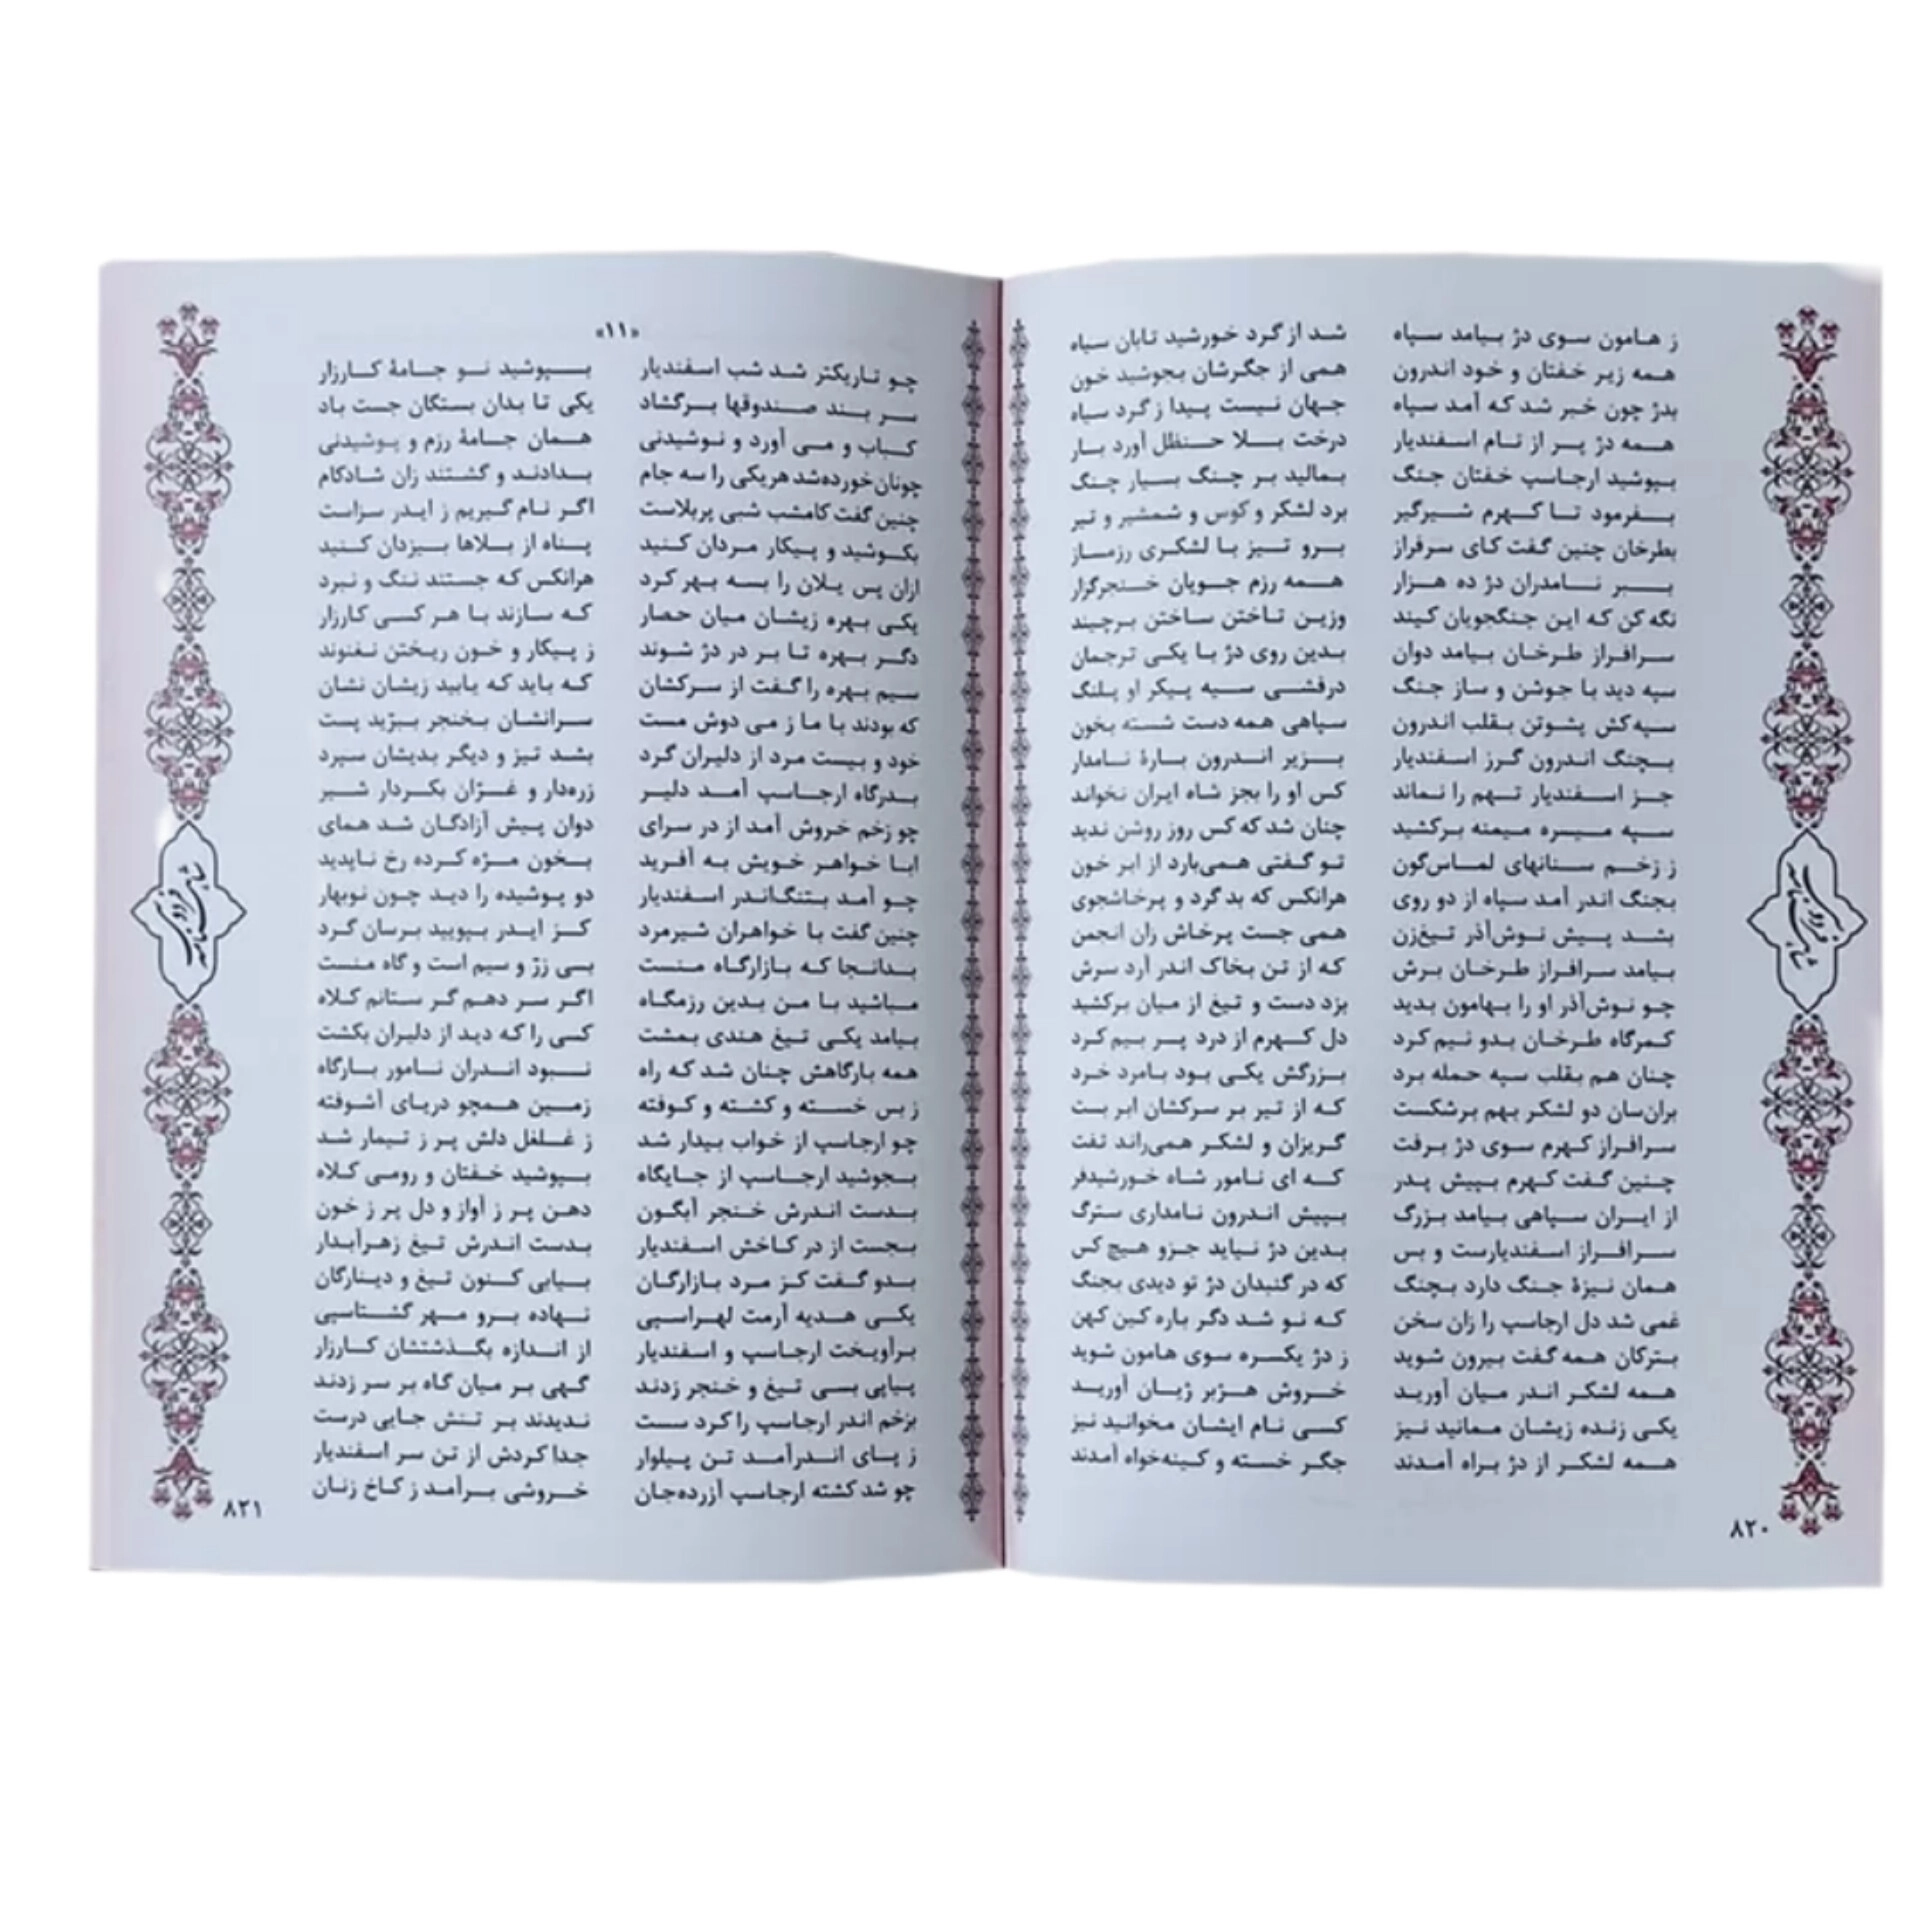 ز هامون سوی دژ بیامد سپاه شد از گرد خورشید تابان سیاه
همه زیر خفتان و خود اندرون همی از جگرشان بجوشید خون
بدژ چون خبر شد که آمد سپاه جهان نیست پیدا ز گرد سیاه
همه دژ پر از نام اسفندیار درخت بلا حنظل آورد بار
بپوشید ارجاسپ خفتان جنگ بمالید بر چنگ بسیار چنگ
بفرمود تا کهرم شیرگیر برد لشکر و کوس و شمشیر و تیر
بطرخان چنین گفت کای سرفراز برو تیز با لشکری رزمساز
ببر نامدران دژ ده هزار همه رزم جویان خنجرگزار
نگه کن که این جنگجویان کیند وزین تاختن ساختن برچیند
سرافراز طرخان بیامد دوان بدین روی دژ با یکی ترجمان
سپه دید با جوشن و ساز جنگ درفشی سیه پیکر او پلنگ
سپه‌کش پشوتن بقلب اندرون سپاهی همه دست شسته بخون
بچنگ اندرون گرز اسفندیار بزیر اندرون بارهٔ نامدار
جز اسفندیار تهم را نماند کس او را بجز شاه ایران نخواند
سپه میسره میمنه برکشید چنان شد که کس روز روشن ندید
ز زخم سنانهای الماس‌گون تو گفتی همی‌بارد از ابر خون
بجنگ اندر آمد سپاه از دو روی هرانکس که بد گرد و پرخاشجوی
بشد پیش نوش‌آذر تیغ‌زن همی جست پرخاش زان انجمن
بیامد سرافراز طرخان برش که از تن بخاک اندر آرد سرش
چو نوش‌آذر او را بهامون بدید بزد دست و تیغ از میان برکشید
کمرگاه طرخان بدو نیم کرد دل کهرم از درد پر بیم کرد
چنان هم بقلب سپه حمله برد بزرگش یکی بود بامرد خرد
بران‌سان دو لشکر بهم برشکست که از تیر بر سرکشان ابر بست
سرافراز کهرم سوی دژ برفت گریزان و لشکر همی‌راند تفت
چنین گفت کهرم بپیش پدر که ای نامور شاه خورشیدفر
از ایران سپاهی بیامد بزرگ بپیش اندرون نامداری سترگ
سرافراز اسفندیارست و بس بدین دژ نیاید جزو هیچ کس
همان نیزهٔ جنگ دارد بچنگ که در گنبدان دژ تو دیدی بجنگ
غمی شد دل ارجاسپ را زان سخن که نو شد دگر باره کین کهن
بترکان همه گفت بیرون شوید ز دژ یکسره سوی هامون شوید
همه لشکر اندر میان آورید خروش هژبر ژیان آورید
یکی زنده زیشان ممانید نیز کسی نام ایشان مخوانید نیز
همه لشکر از دژ براه آمدند جگر خسته و کینه‌خواه آمدند
۸۲۰
شاهنامه فردوسی
«۱۱»
چو تاریکتر شد شب اسفندیار بپوشید نو جامهٔ کارزار
سر بند صندوقها برگشاد یکی تا بدان بستگان جست باد
کباب و می آورد و نوشیدنی همان جامهٔ رزم و پوشیدنی
چونان خورده‌شد هریکی را سه جام بدادند و گشتند زان شادکام
چنین گفت کامشب شبی پربلاست اگر نام گیریم ز ایدر سزاست
بکوشید و پیکار مردان کنید پناه از بلاها بیزدان کنید
ازان پس یلان را بسه بهر کرد هرانکس که جستند ننگ و نبرد
یکی بهره زیشان میان حصار که سازند با هر کسی کارزار
دگر بهره تا بر در دژ شوند ز پیکار و خون ریختن نغنوند
سیم بهره را گفت از سرکشان که باید که یابید زیشان نشان
که بودند با ما ز می دوش مست سرانشان بخنجر ببرّید پست
خود و بیست مرد از دلیران گرد بشد تیز و دیگر بدیشان سپرد
بدرگاه ارجاسپ آمد دلیر زره‌دار و غرّان بکردار شیر
چو زخم خروش آمد از در سرای دوان پیش آزادگان شد همای
ابا خواهر خویش به آفرید بخون مژه کرده رخ ناپدید
چو آمد بتنگ‌اندر اسفندیار دو پوشیده را دید چون نوبهار
چنین گفت با خواهران شیرمرد کز ایدر بپویید برسان گرد
بدانجا که بازارگاه منست بسی زرّ و سیم است و گاه منست
مباشید با من بدین رزمگاه اگر سر دهم گر ستانم کلاه
بیامد یکی تیغ هندی بمشت کسی را که دید از دلیران بکشت
همه بارگاهش چنان شد که راه نبود اندران نامور بارگاه
ز بس خسته و کشته و کوفته زمین همچو دریای آشوفته
چو ارجاسپ از خواب بیدار شد ز غلغل دلش پر ز تیمار شد
بجوشید ارجاسپ از جایگاه بپوشید خفتان و رومی کلاه
بدست اندرش خنجر آبگون دهن پر ز آواز و دل پر ز خون
بجست از در کاخش اسفندیار بدست اندرش تیغ زهرآبدار
بدو گفت کز مرد بازارگان بیابی کنون تیغ و دینارگان
یکی هدیه آرمت لهراسپی نهاده برو مهر گشتاسپی
برآویخت ارجاسپ و اسفندیار از اندازه بگذشتشان کارزار
پیاپی بسی تیغ و خنجر زدند گهی بر میان گاه بر سر زدند
بزخم اندر ارجاسپ را کرد سست ندیدند بر تنش جایی درست
ز پای اندرآمد تن پیلوار جدا کردش از تن سر اسفندیار
چو شد کشته ارجاسپ آزرده‌جان خروشی برآمد ز کاخ زنان
۸۲۱
شاهنامه فردوسی